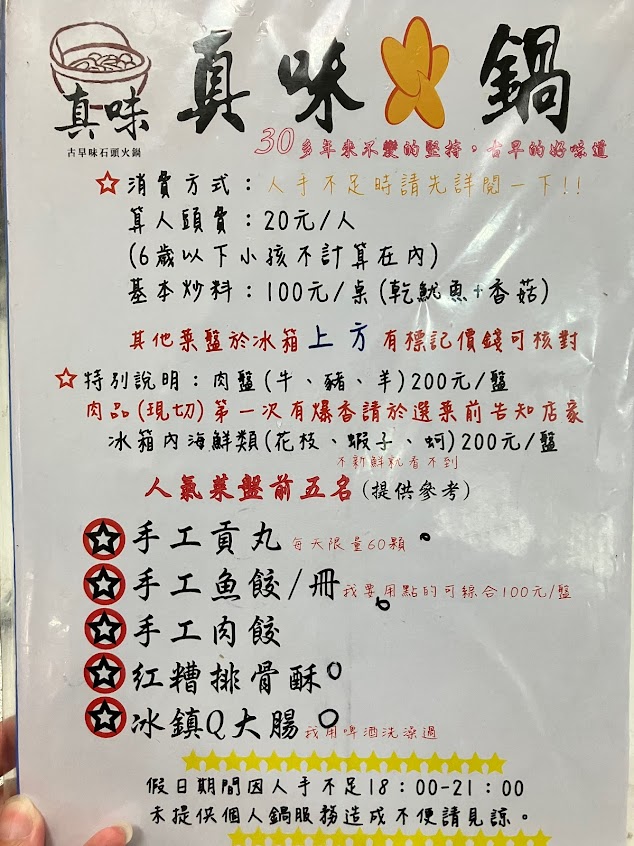 真味
古早味石頭火鍋
真味火鍋
30多年來不變的堅持。古早的好味道
消費方式：人手不足時請先詳閱一下!!
算人頭費：20元/人
(6歲以下小孩不計算在內)
基本炒料：100元/桌(乾魷魚+香菇)
其他菜盤於冰箱上方有標記價錢可核對
特別說明：肉盤(牛、豬、羊)200元/盤
肉品(現切)第一次有爆香請於選菜前告知店家
冰箱內海鮮類(花枝、蝦子、蚵)200元/盤
不新鮮就看不到
人氣菜盤前五名(提供參考)
手工貢丸 每天限量60顆
手工魚餃/冊 我要用點的可綜合100元/盤
手工肉餃
紅糟排骨酥
冰鎮Q大腸 我用啤酒洗澡過
假日期間因人手不足18：00-21：00
未提供個人鍋服務造成不便請見諒。